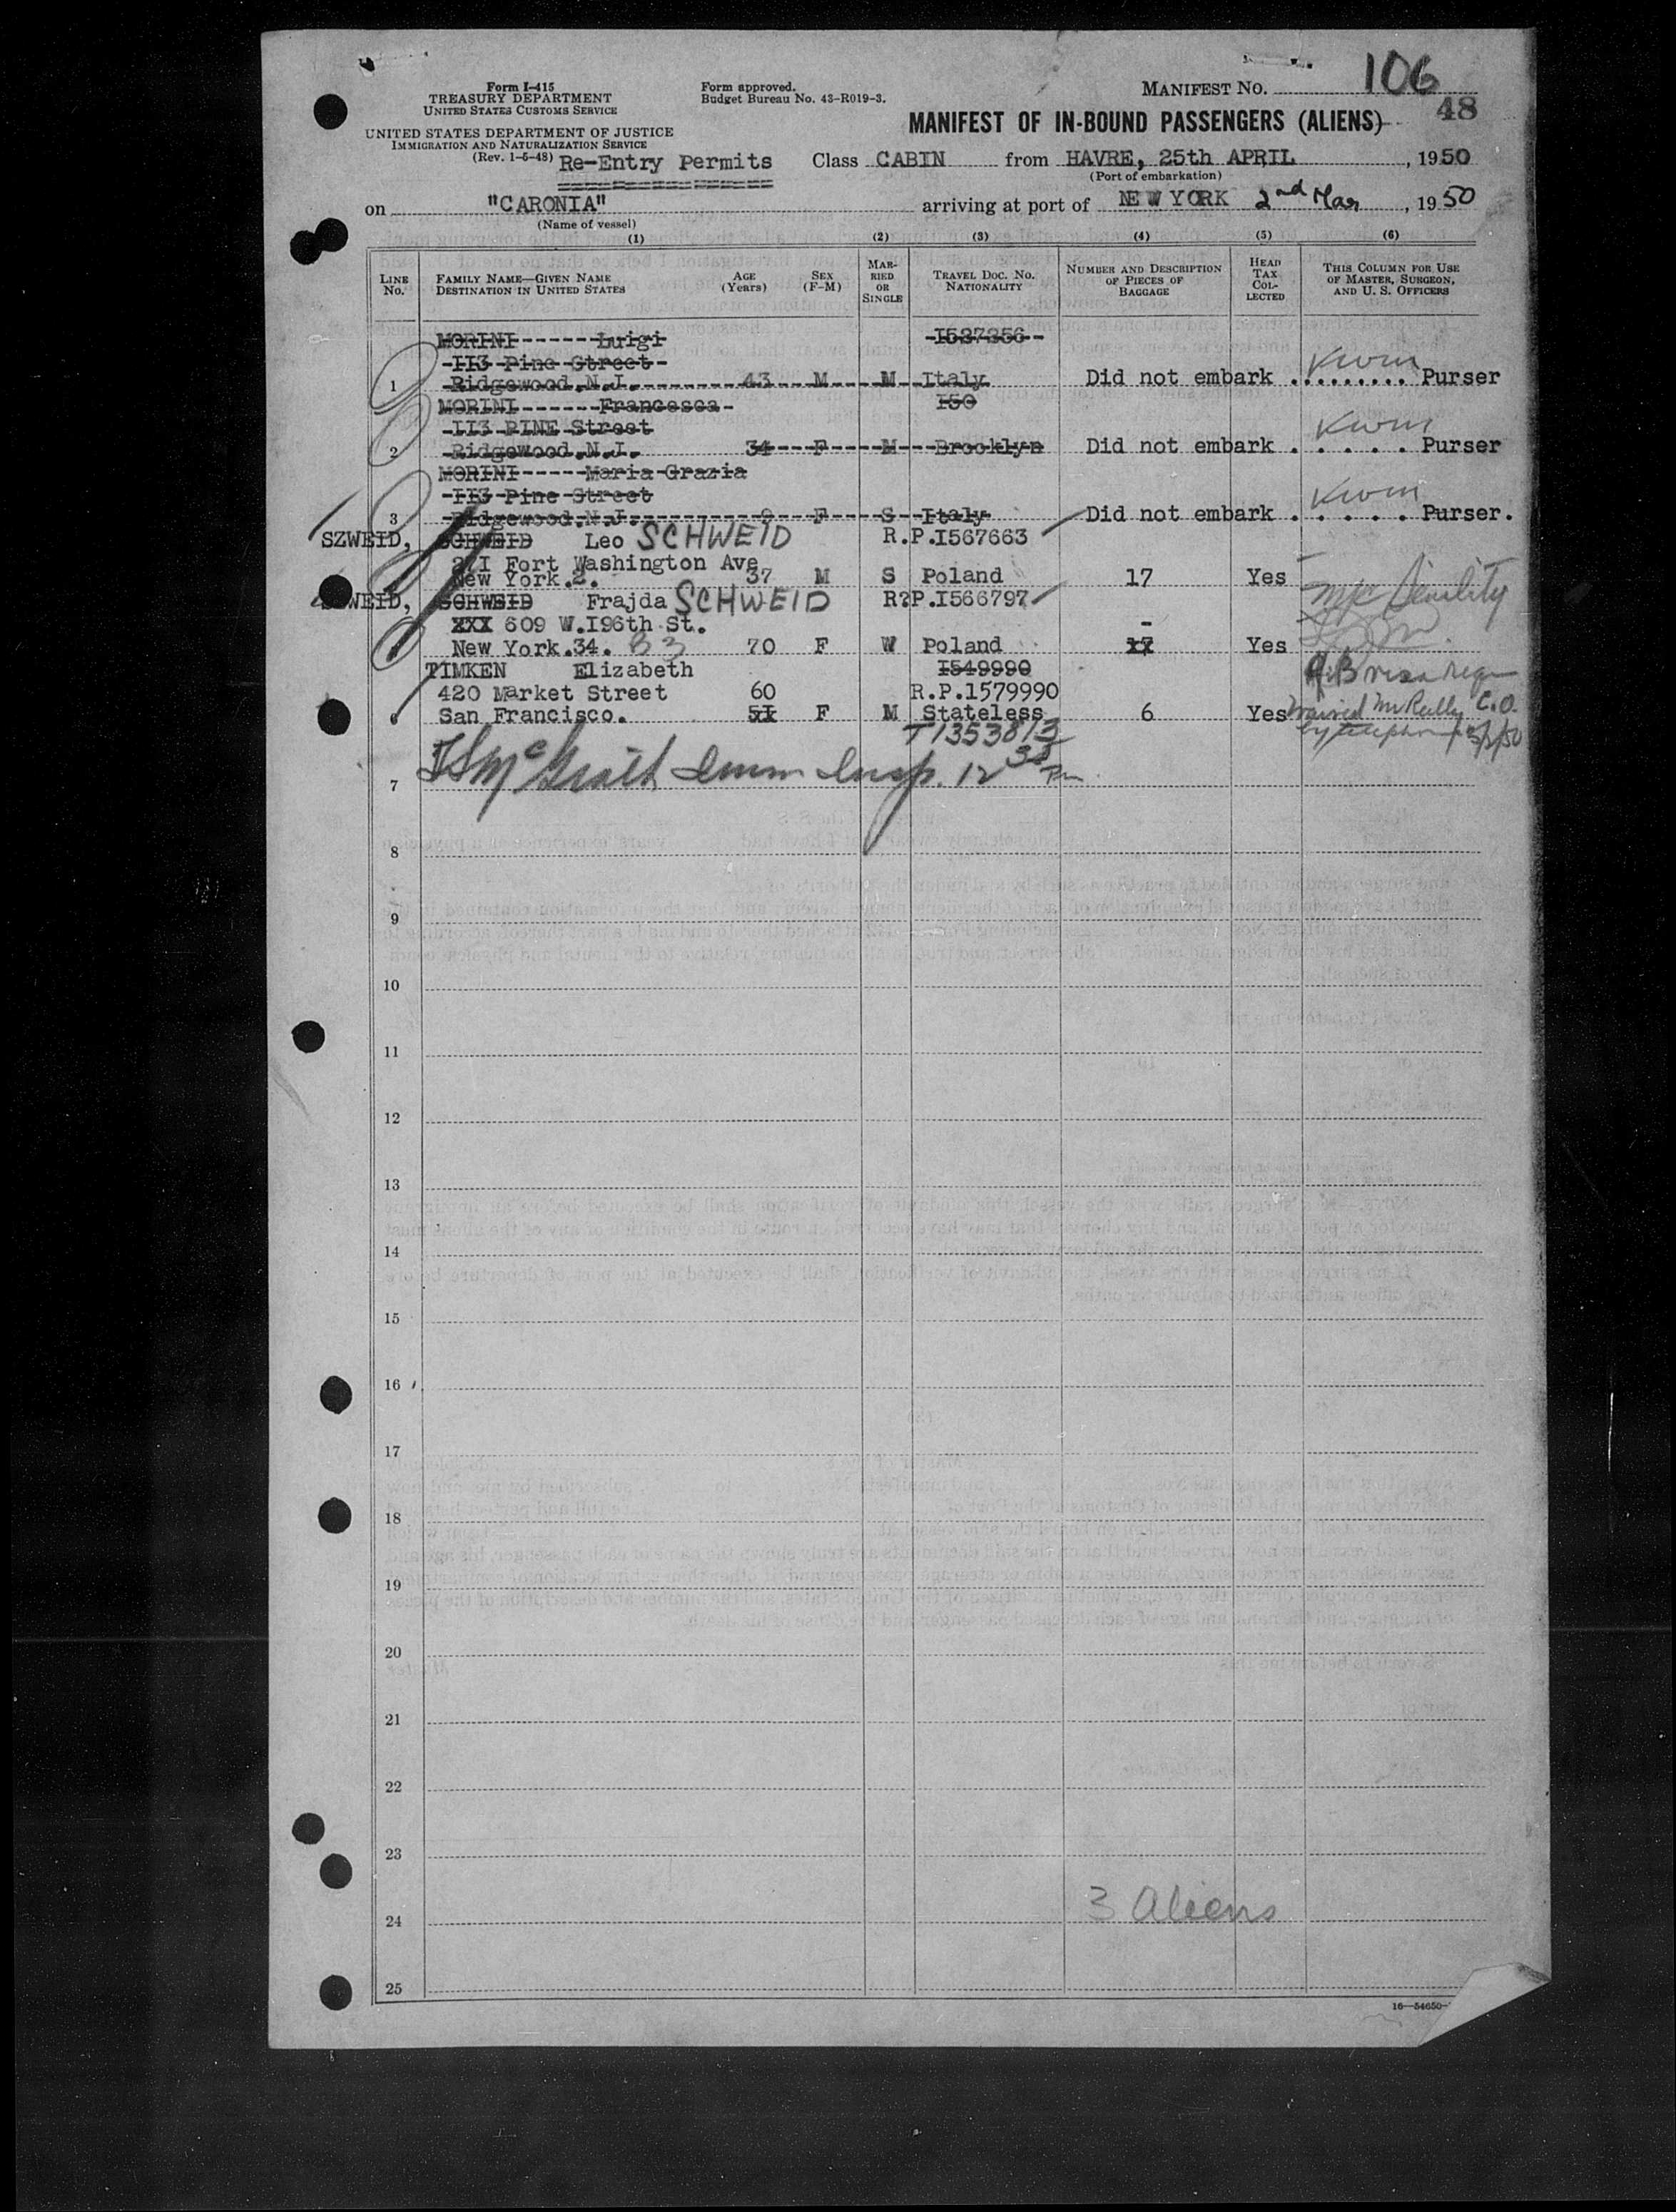 Form I-415
TREASURY DEPARTMENT
UNITED STATES CUSTOMS SERVICE
UNITED STATES DEPARTMENT OF JUSTICE
IMMIGRATION AND NATURALIZATION SERVICE
(Rev. 1-5-48) Re-Entry Permits
Form approved.
Budget Bureau No. 43-R019-3.
MANIFEST NO. 106
48
MANIFEST OF IN-BOUND PASSENGERS (ALIENS)
Class CABIN from HAVRE, 25th APRIL, 1950
(Port of embarkation)
on "CARONIA" arriving at port of NEW YORK 2nd May, 1950
(Name of vessel)
(1) (2) (3) (4) (5) (6)
LINE No. FAMILY NAME—GIVEN NAME DESTINATION IN UNITED STATES AGE (Years) SEX (F-M) MARRIED OR SINGLE TRAVEL DOC. NO. NATIONALITY NUMBER AND DESCRIPTION OF PIECES OF BAGGAGE HEAD TAX COLLECTED THIS COLUMN FOR USE OF MASTER, SURGEON, AND U. S. OFFICERS
MORINI Luigi I527256
113 Pine Street
1 Ridgewood.N.J. 43 M M Italy Did not embark . . . . . . . . . Purser
MORINI Francesca I50
II3 PINE Street
2 Ridgewood.N.J. 34 F M Brooklyn Did not embark . . . . . . Purser
MORINI Maria Grazia
II3 Pine Street
3 Ridgewood.N.J. 9 F S Italy Did not embark . . . . . . Purser.
SZWEID, SCHWEID Leo SCHWEID R.P.I567663
Fort Washington Ave
New York.2. 37 M S Poland 17 Yes
SZWEID, SCHWEID Frajda SCHWEID R?P.I566797
XXX 609 W.I96th St.
New York.34. B3 70 F W Poland 17 - Yes
TIMKEN Elizabeth I549990
420 Market Street 60 R.P.1579990
6 San Francisco. 51 F M Stateless 6 Yes
T1353813
7 McGrath Imm Insp. 12 30 Pm
8
9
10
11
12
13
14
15
16
17
18
19
20
21
22
23
24 3 aliens
25